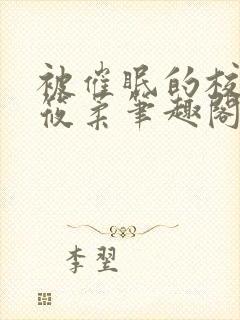 被催眠的校
筱柔笔趣阁
李翌